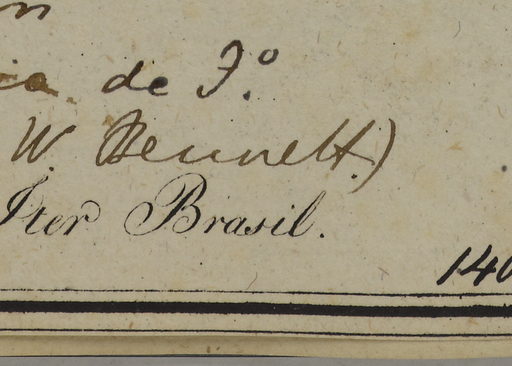 de J.º
W. Bennett)
Iter Brasil.
140